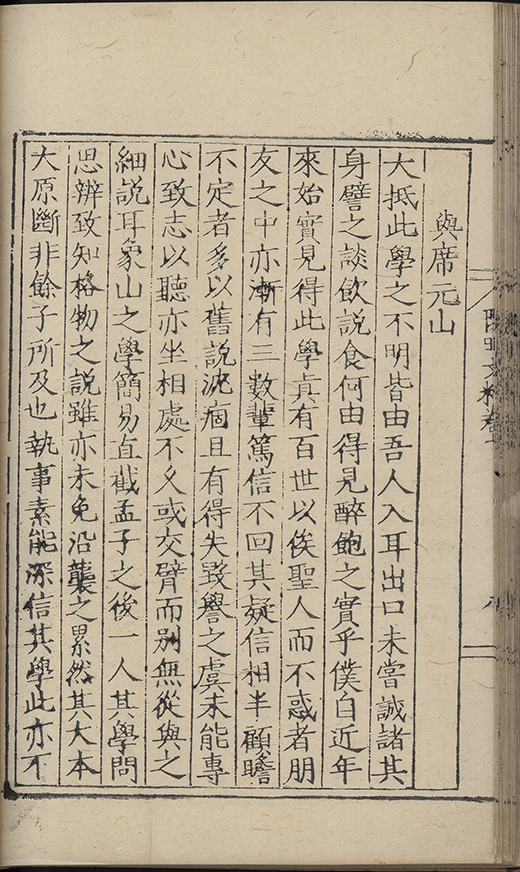 與席元山
大抵此學之不明皆由吾人入耳出口未嘗誠諸其
身譬之談飲說食何由得見醉飽之實乎僕自近年
來始實見得此學真有百世以俟聖人而不惑者朋
友之中亦漸有三數輩篤信不回其疑信相半顧瞻
不定者多以舊說沈痼且有得失毀譽之虞未能專
心致志以聽亦坐相處不久或交臂而別無從與之
細說耳象山之學簡易直截孟子之後一人其學問
思辨致知格物之說雖亦未免沿襲之累然其大本
大原斷非餘子所及也執事素能深信其學此亦不
陽明文粹卷
八